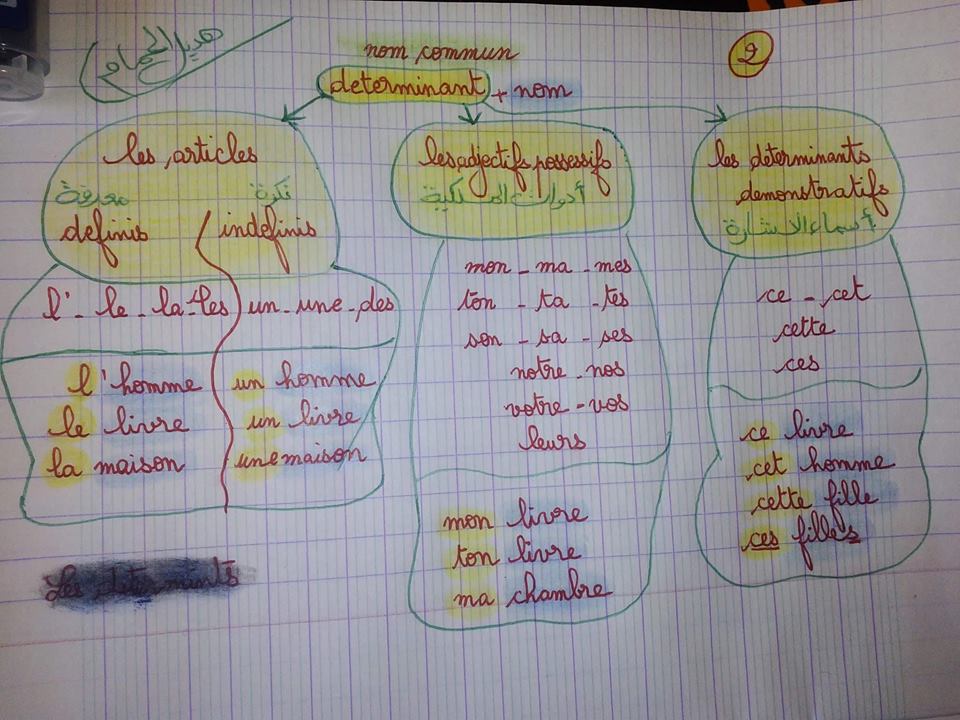 هديل الحمام
2
nom commun
determinant + nom
les articles
معرفة نكرة
definis indefinis
l' - le - la - les un - une - des
l'homme un homme
le livre un livre
la maison une maison
les adjectifs possessifs
أدوات الملكية
mon - ma - mes
ton - ta - tes
son - sa - ses
notre - nos
votre - vos
leurs
mon livre
ton livre
ma chambre
les determinants
demonstratifs
أسماء الاشارة
ce - cet
cette
ces
ce livre
cet homme
cette fille
ces filles
Les determints